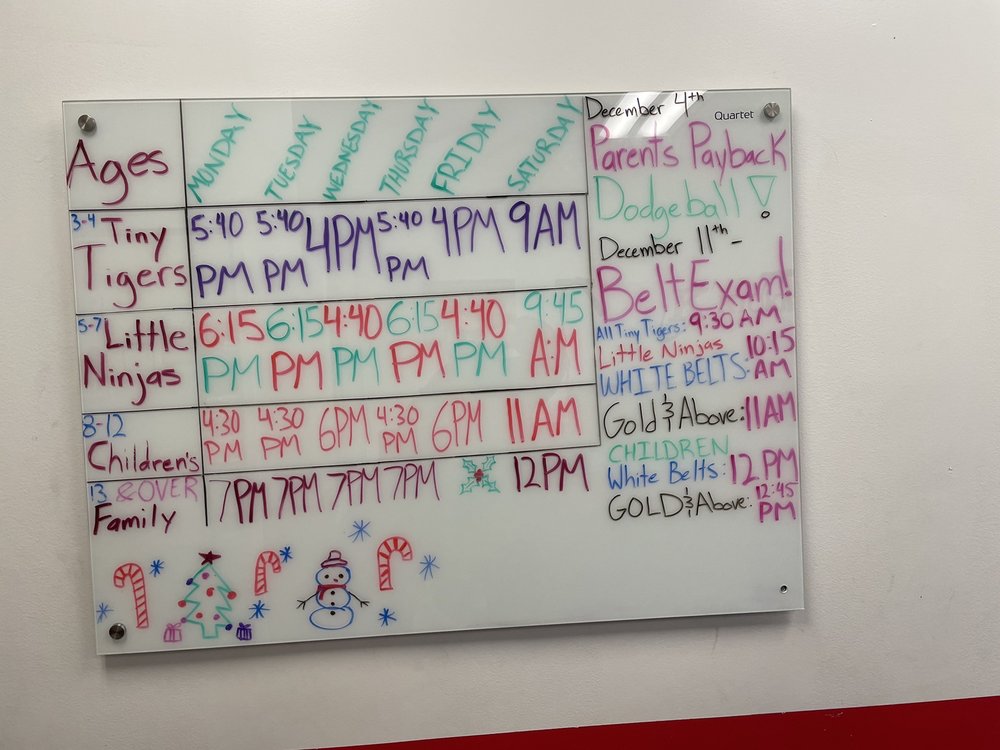 Ages MONDAY TUESDAY WEDNESDAY THURSDAY FRIDAY SATURDAY
3-4 Tiny
Tigers
5:40 PM 5:40 PM 4PM 5:40 PM 4PM 9AM
5-7 Little
Ninjas
6:15 PM 6:15 PM 4:40 PM 6:15 PM 4:40 PM 9:45 A:M
8-12
Children's
4:30 PM 4:30 PM 6PM 4:30 PM 6PM 11AM
13 & OVER
Family
7PM 7PM 7PM 7PM 12PM
December 4th
Quartet
Parents Payback
Dodgeball!
December 11th-
Belt Exam!
All Tiny Tigers: 9:30 AM
Little Ninjas 10:15
WHITE BELTS: AM
Gold & Above: 11AM
CHILDREN
White Belts: 12PM
GOLD & Above: 12:45
PM